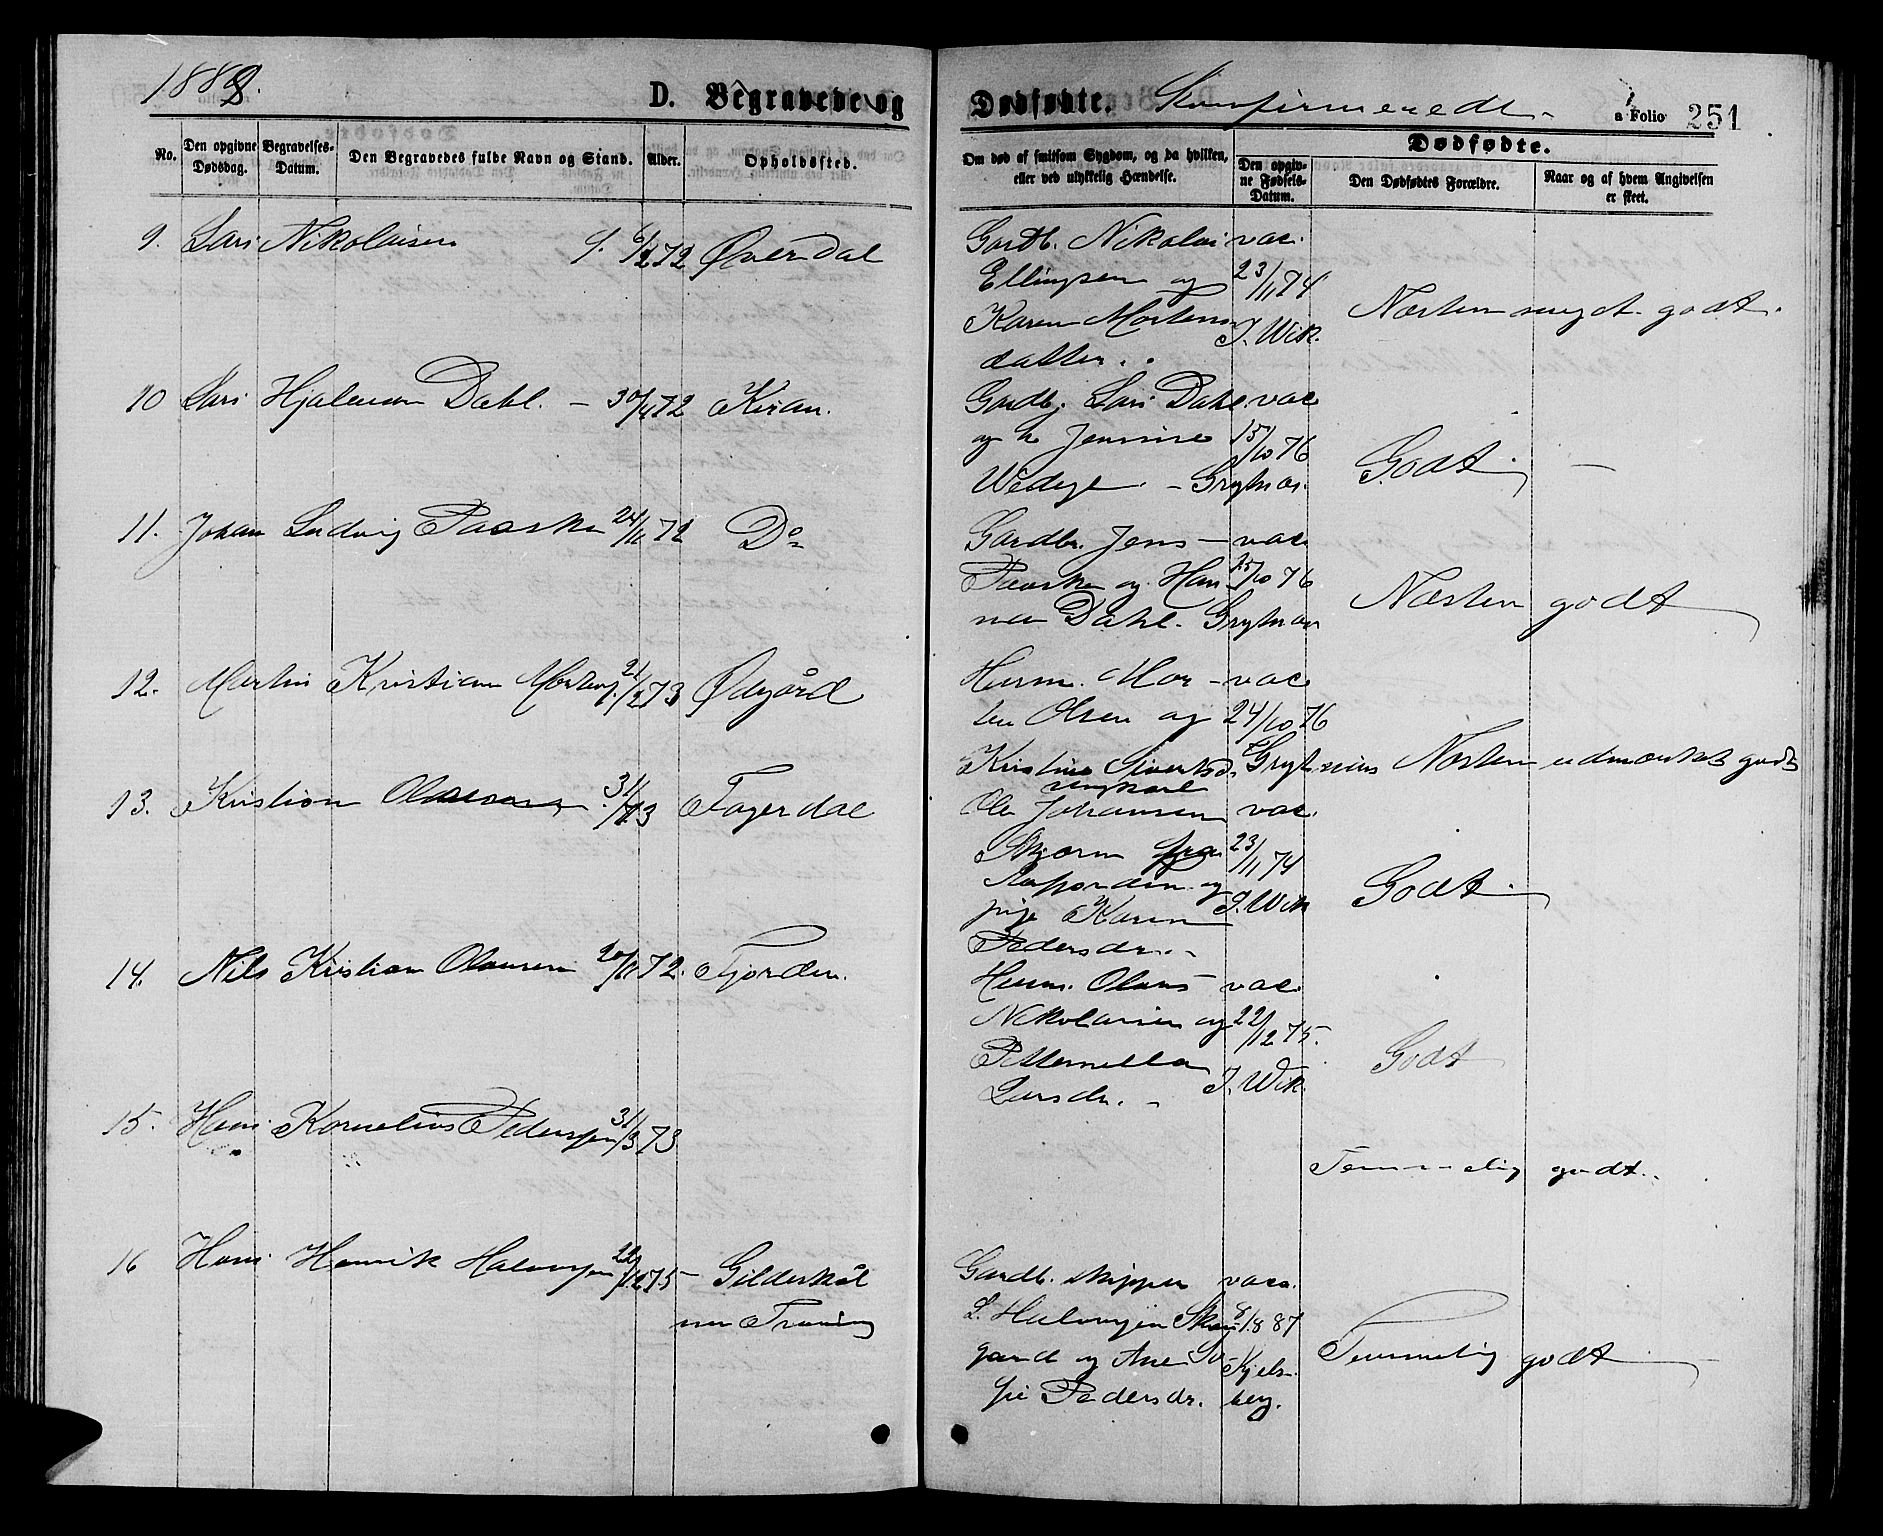 1888.
D. Begravede og
Dødfødte. Konfirmerede.
a Folio 251
No.
Den opgivne Dødsdag.
Begravelses-Datum.
Den Begravedes fulde Navn og Stand.
Alder.
Opholdssted.
Om død af smitsom Sygdom, og da hvilken, eller ved ulykkelig Hændelse.
Dødfødte.
Den opgiv-ne Fødsels-Datum.
Den Dødfødtes Forældre.
Naar og af hvem Angivelsen er skeet.
9. Lars Nikolaisen f. 6/2 72 Øverdal
Gardb. Nikolai vac.
Ellingsen og 23/11 74
Karen Mortens J. Wik.
datter.
Næsten meget godt.
10 Lars Hjalmar Dahl. - 30/11 72 Kvan.
Gardb. Lars Dahl vac
og h. Jensine 15/10 76
Wedege. - Grytnæs.
Godt.
11. Johan Ludvig Paaske 24/11 72 Do
Gardbr. Jens - vac
Paaske og Han- 15/10 76
na Dahl. Grytnæs
Næsten godt
12. Martin Kristian Mortens. 21/2 73 Ødegård
Husm. Mor- vac
ten Olsen og 24/10 76
Kristine Sivertsd. Grytnæs Næsten udmærket godt
13. Kristian 31/1 73 Fagerdal
ungkarl
Ole Johansen vac.
Skjærn fra 23/11 74
og J. Wik
pige Karen
Pedersdr.
Godt.
14. Nils Kristian Olausen 20/11 72. Fjorden.
Husm. Olaus - vac.
Nikolaisen og 22/12 75.
Petternella J. Wik.
Larsdr.
Godt
15. Hans Kornelius Pedersen 31/3 73
Temmelig godt.
16 Hans Henrik Halvorsen 22/12 75 - Gilderskål
nu Træning
Gardb. skipper vacc.
L. Halvorsen Skau- 8/8 87
gard og Ane So- Kjels-
fie Pedersdr. berg.
Temmelig godt